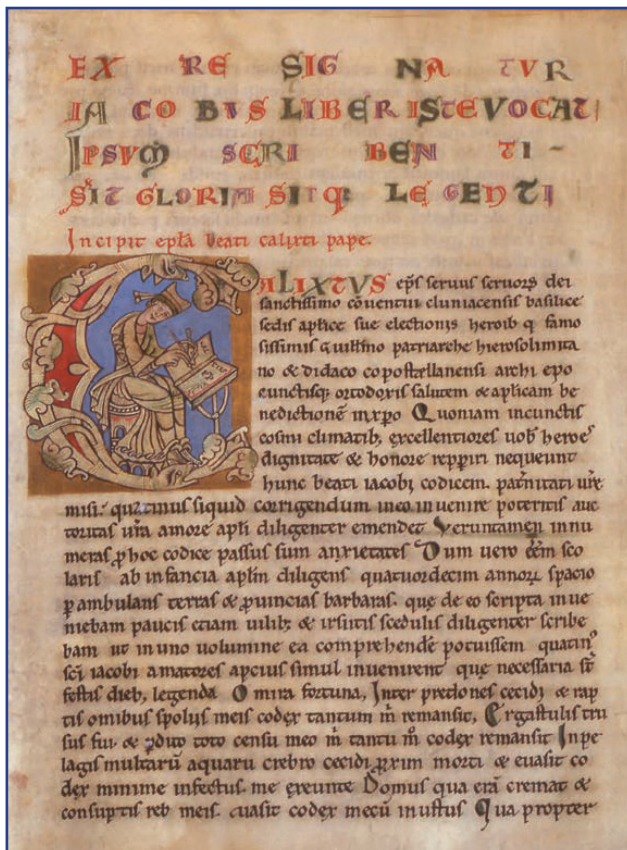 EX RE SIGNATUR
IACOBUS LIBER ISTE VOCAT
IPSUM SCRIBENTI-
SIT GLORIA SITQ: LEGENTI
Incipit epła beati calixti pape.
CALIXTVS ep̃s seruus seruoꝝ dei
sanctissimo cõuentui cluniacensis basilice
sedis aplice sue electionis heroib q famo
sissimis Guillmo patriarche hierosolimita
no & didaco copostellanensi archi epo
cunctisq; ortodoxis salutem & aplicam be
nedictionẽ inxpo Quoniam incunctis
cosmi climatib; excellentiores uob heroes
dignitate & honore repperiri nequeunt
hunc beati iacobi codicem. pat̃nitati ur̃e
misi. quatinus siquid corrigendum ineo inuenire poteritis auc
toritas ur̃a amore apłi diligenter emendet Veruntamen innu
meras ꝓ hoc codice passus sum anxietates Dum uero eẽm sco
laris ab infancia apłm diligens quatuordecim annoꝝ spacio
ꝑambulans terras & ꝓuincias barbaras. que de eo scripta inue
niebam paucis etiam uilib; & irsutis scedulis diligenter scribe
bam ut in uno uolumine ea comprehendẽ potuissem quatinꝰ
sci iacobi amatores apcius simul inuenirent que necessaria st̃
festis dieb; legenda O mira fortuna, Inter predones cecidi & rap
tis omibus spoliis meis codex tantum m̃ remansit, Ergastulis tru
sus fui. & ꝑdito toto censu meo m̃ tantu m̊ codex remansit Inpe
lagis multarũ aquaru crebro cecidi ꝓxim morti & euasit co
dex minime infectus. me exeunte Domus qua erã cremat̃ &
consuptis reb meis. euasit codex mecũ inustus Qua propter